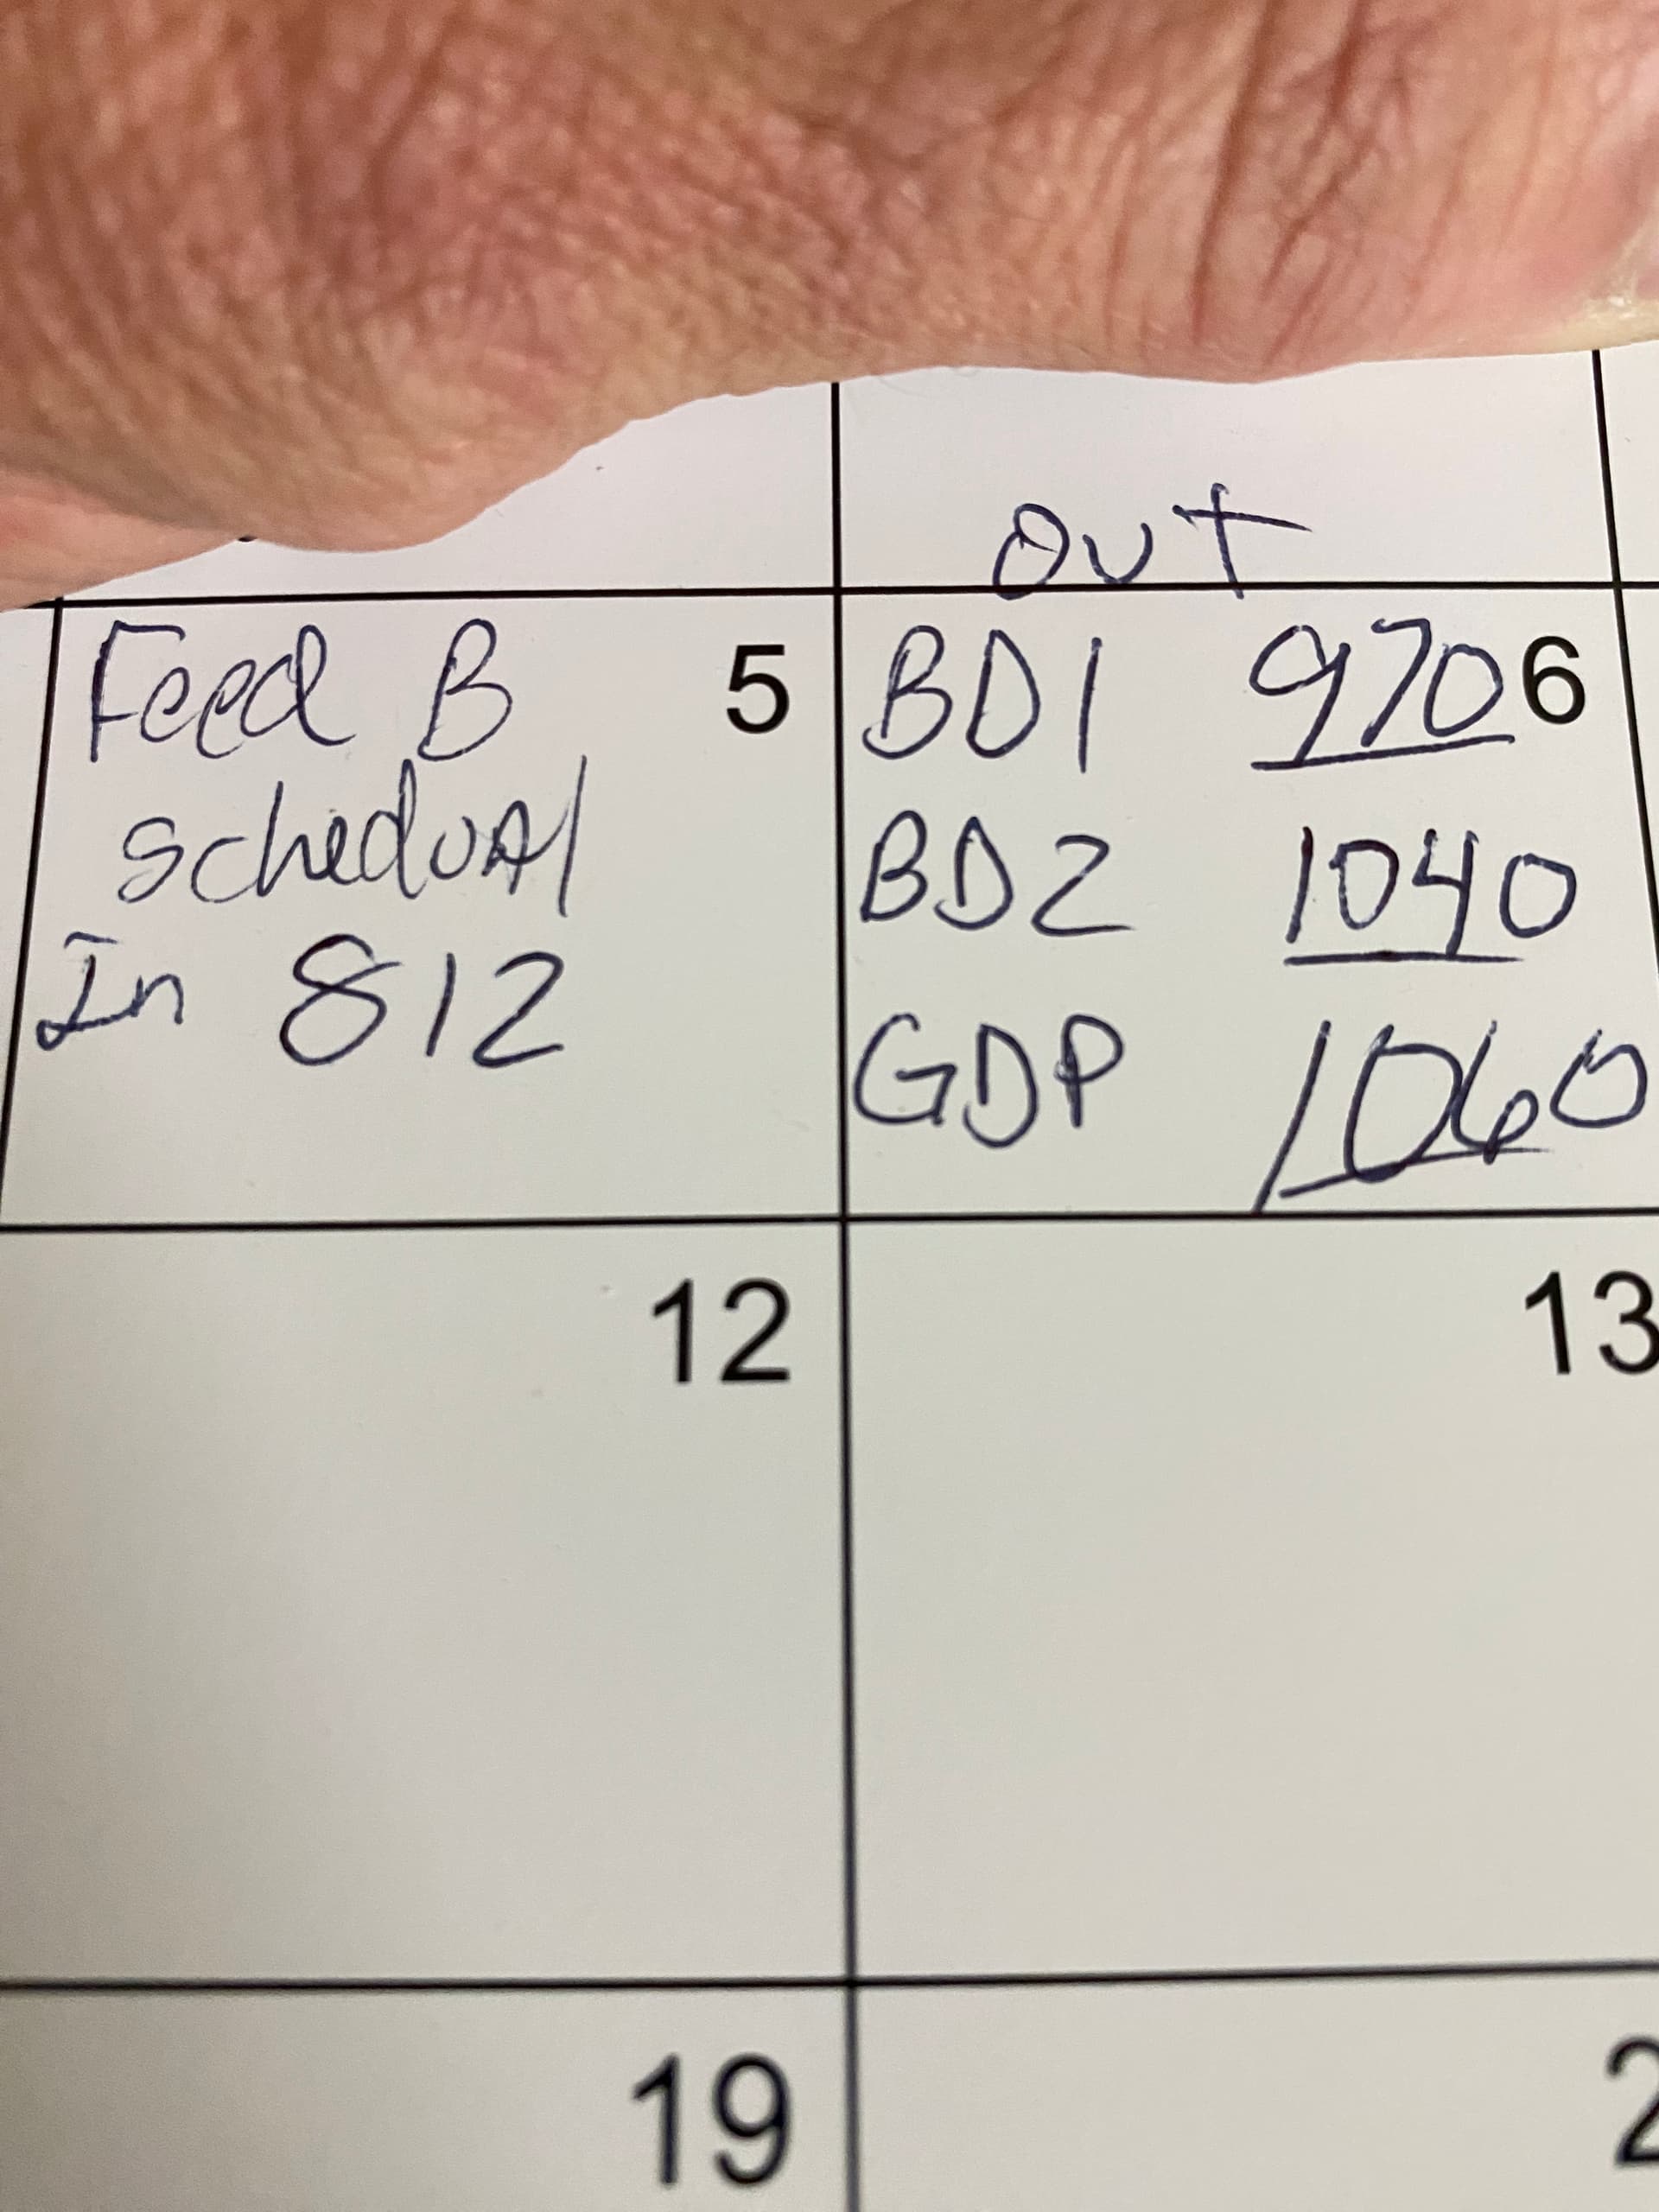 out
Feed B 5
schedual
In 812
BD1 970 6
BD2 1040
GDP 1060
12
13
19
2